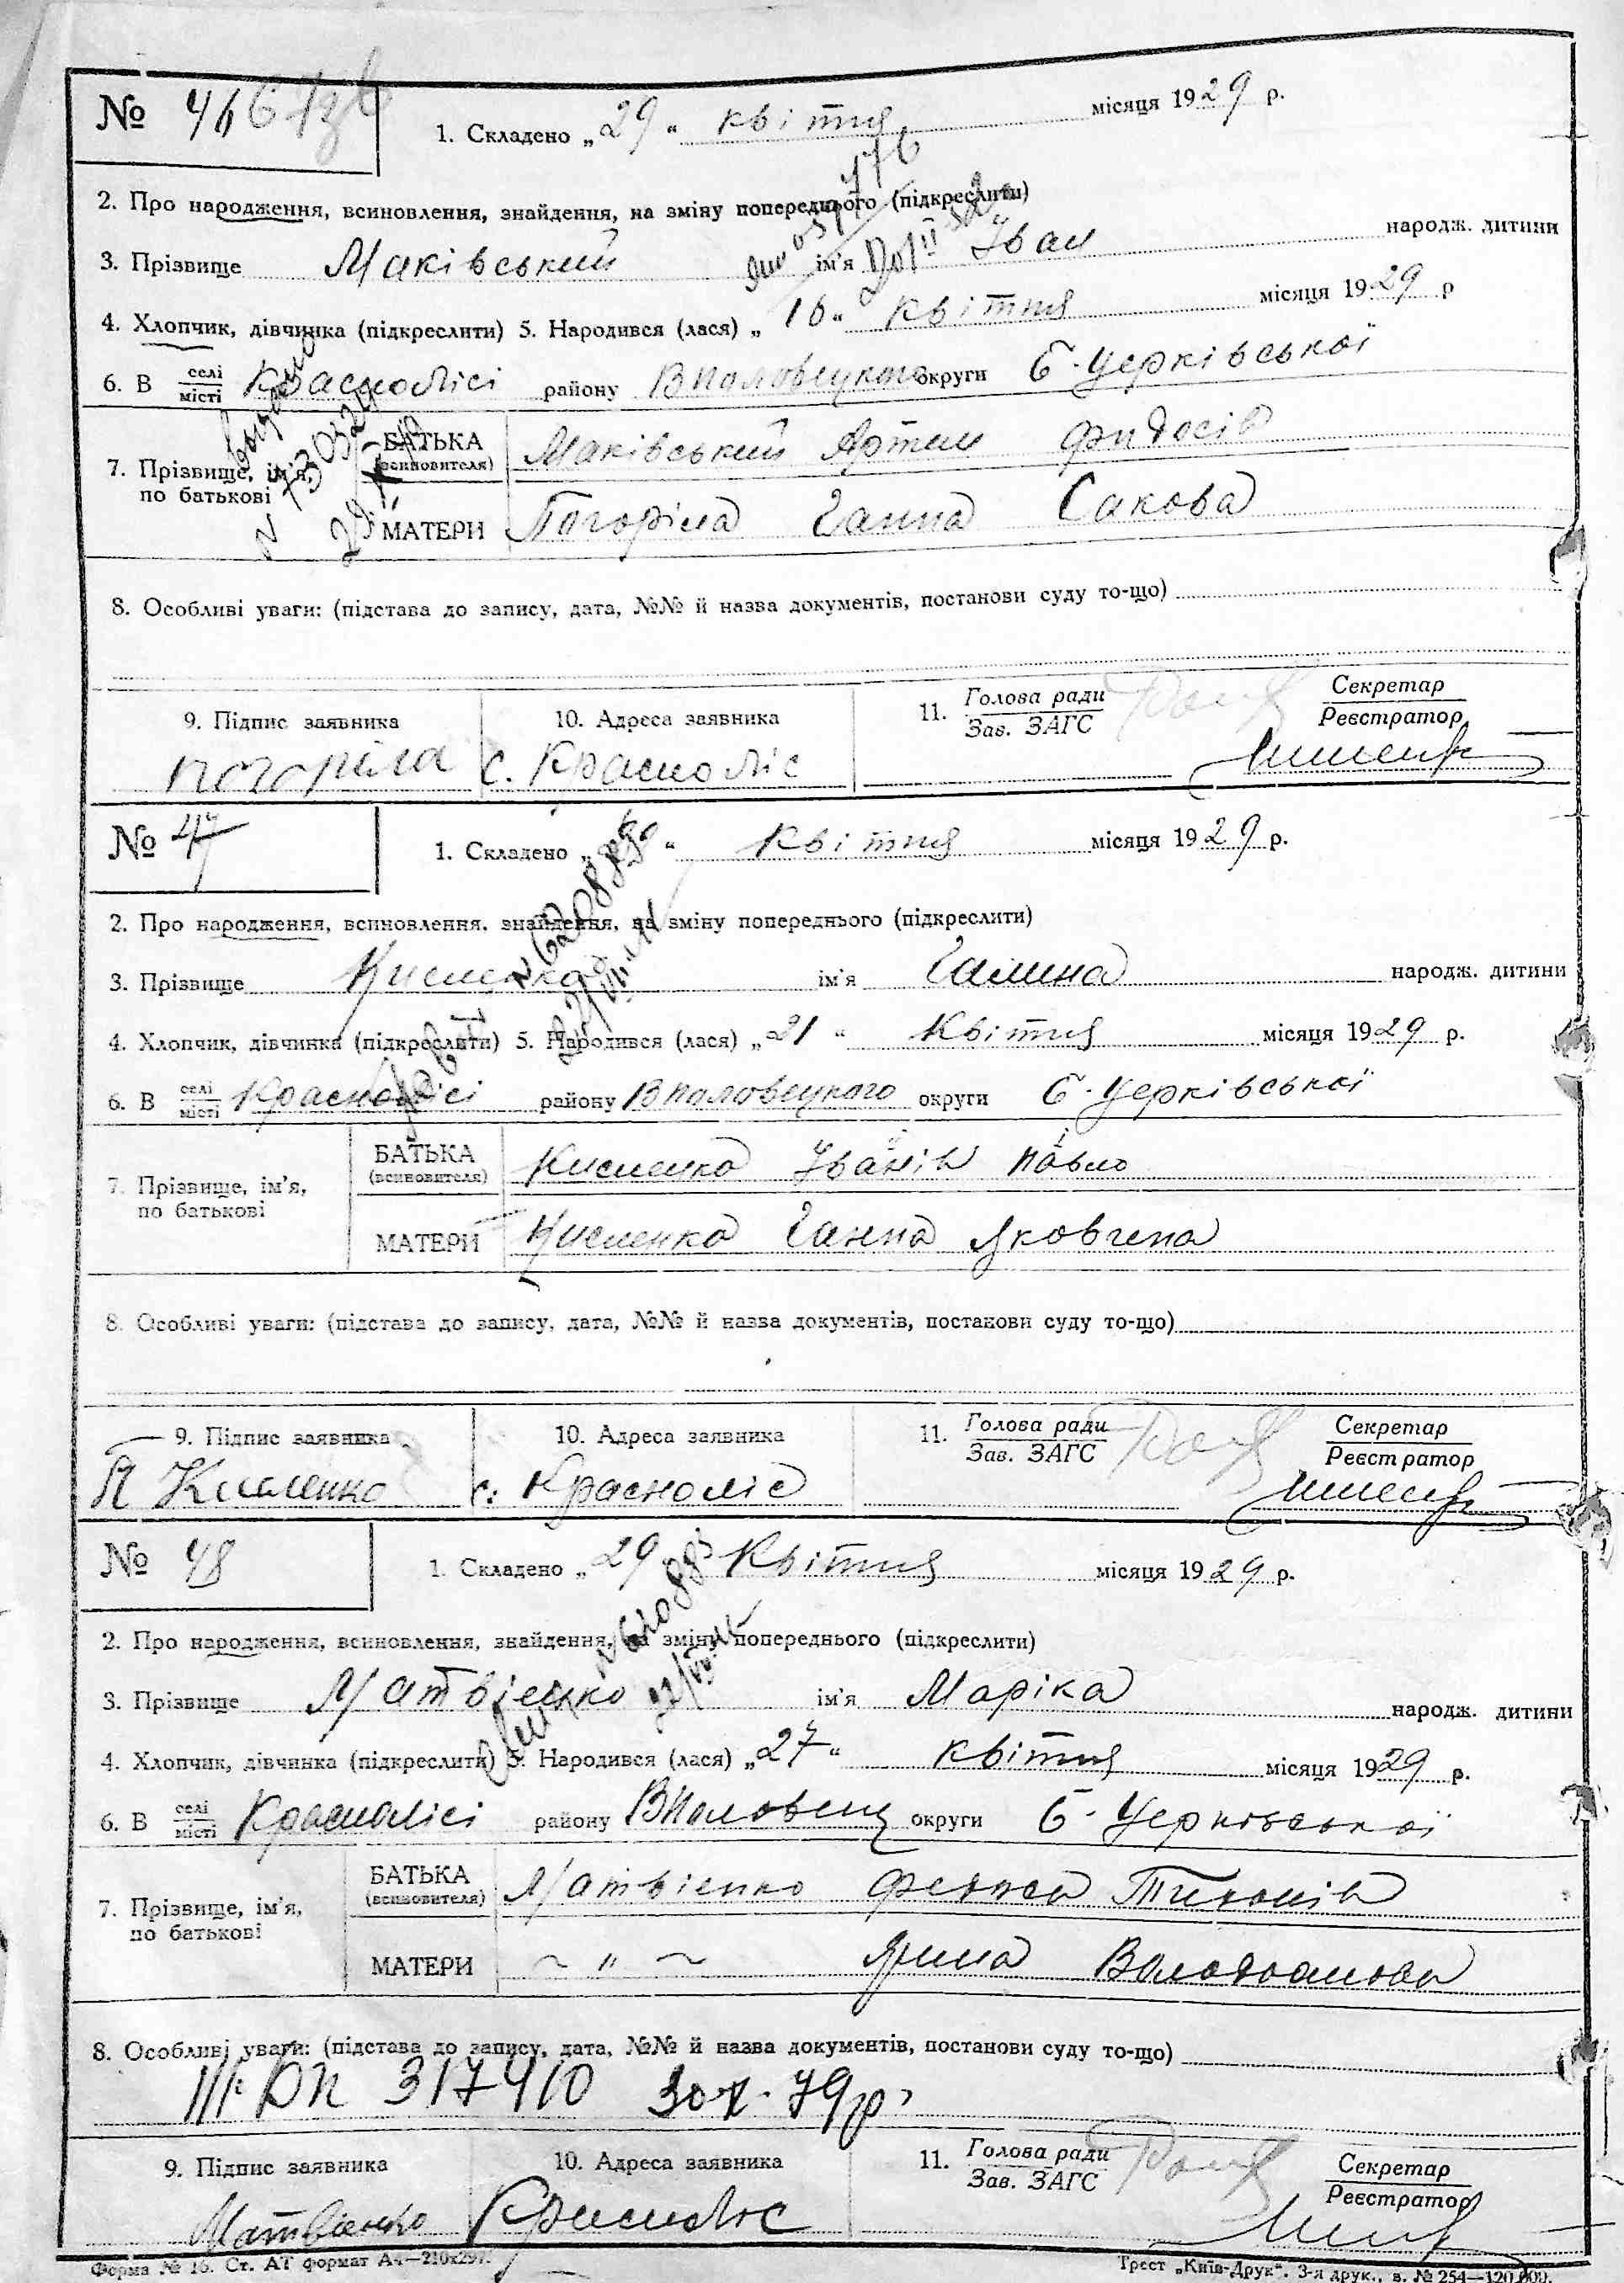 № 46
1. Складено „29“ квітня місяця 1929 р.
2. Про народження, всиновлення, знайдення, на зміну попереднього (підкреслити)
3. Прізвище Маківський ім'я Іван народж. дитини
4. Хлопчик, дівчинка (підкреслити) 5. Народився (лася) „16“ квітня місяця 1929 р
6. В селі місті Краснолісі району Вполовецького округи Б-Церківської
7. Прізвище, ім'я, по батькові
БАТЬКА (всиновителя) Маківський Артем Фидосів
МАТЕРИ Погоріла Ганна Сакова
8. Особливі уваги: (підстава до запису, дата, №№ й назва документів, постанови суду то-що)
9. Підпис заявника 10. Адреса заявника 11. Голова ради Зав. ЗАГС Секретар Реєстратор
Погоріла с. Красноліс
№ 47
1. Складено „ “ квітня місяця 1929 р.
2. Про народження, всиновлення. знайдення, на зміну попереднього (підкреслити)
3. Прізвище Кисленко ім'я Галина народж. дитини
4. Хлопчик, дівчинка (підкреслити) 5. Народився (лася) „21“ квітня місяця 1929 р.
6. В селі місті Краснолісі району Вполовецкого округи Б-Церківської
7. Прізвище, ім'я, по батькові
БАТЬКА (всиновителя) Кисленко Іванів Павло
МАТЕРИ Кисленко Ганна Яковлена
8. Особливі уваги: (підстава до запису, дата, №№ й назва документів, постанови суду то-що)
9. Підпис заявника 10. Адреса заявника 11. Голова ради Зав. ЗАГС Секретар Реєстратор
П Кисленко с. Красноліс
№ 48
1. Складено „29 квітня місяця 1929 р.
2. Про народження, всиновлення, знайдення, на зміну попереднього (підкреслити)
3. Прізвище Матвієнко ім'я Маріка народж. дитини
4. Хлопчик, дівчинка (підкреслити) 5. Народився (лася) „27“ квітня місяця 1929 р.
6. В селі місті Краснолісі району Вполовец округи Б-Церківської
7. Прізвище, ім'я, по батькові
БАТЬКА (всиновителя) Матвієнко Тихонів
МАТЕРИ ~ " ~ Ярина
8. Особливі уваги: (підстава до запису, дата, №№ й назва документів, постанови суду то-що)
317410 30 X. 79р.
9. Підпис заявника 10. Адреса заявника 11. Голова ради Зав. ЗАГС Секретар Реєстратор
Матвієнко Красноліс
Форма № 16. Ст. АТ формат А4—210х297. Трест „Київ-Друк“. 3-я друк., в. № 254—120.000.